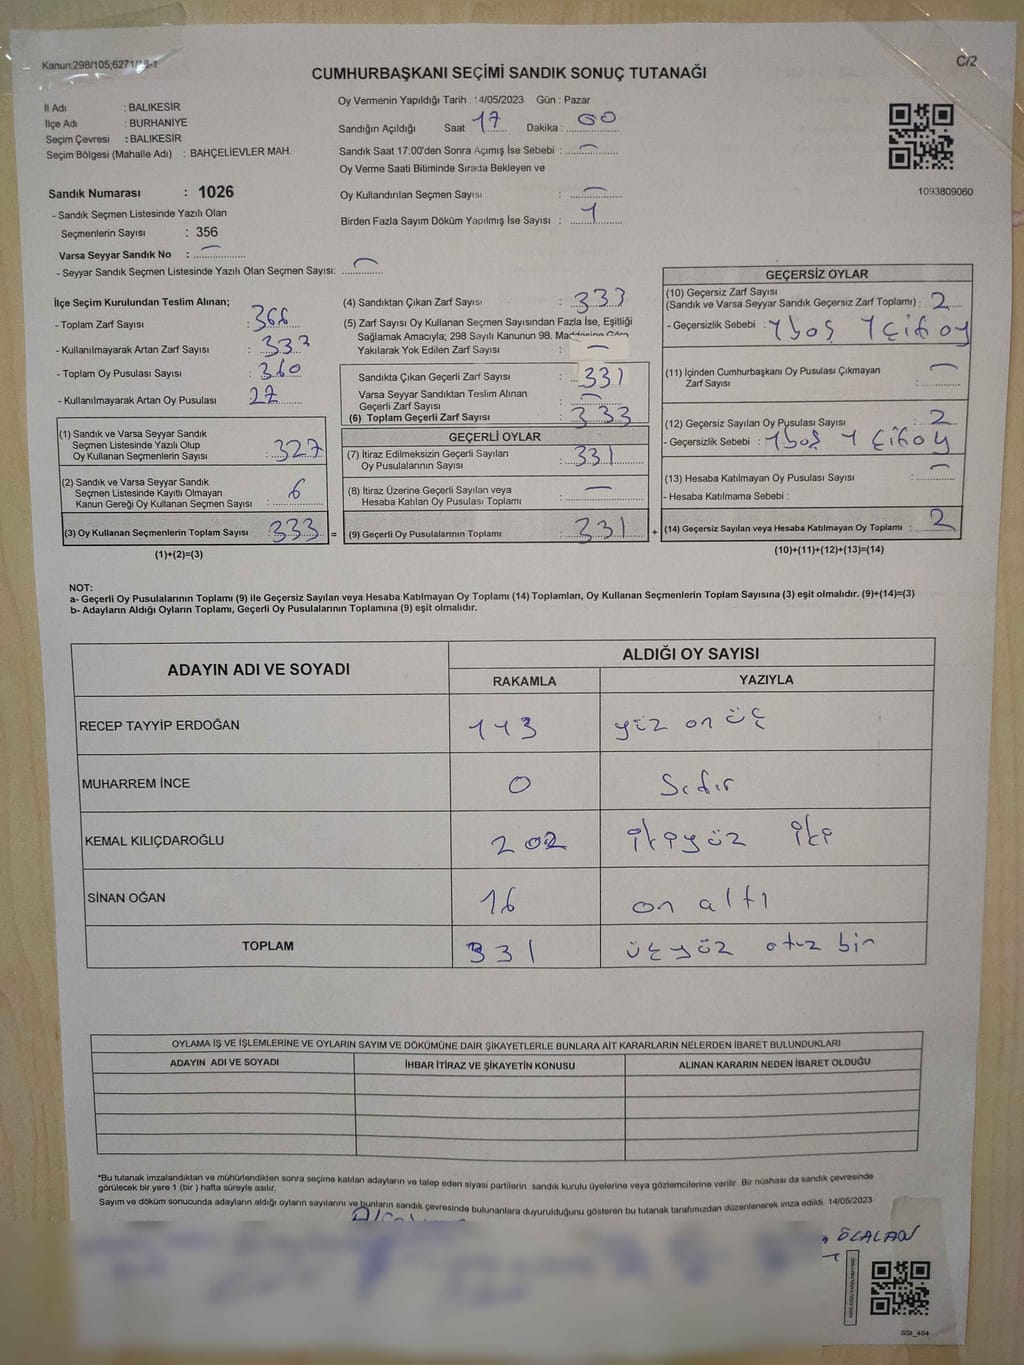 Kanun:298/105;6271/19-1
C/2
CUMHURBAŞKANI SEÇİMİ SANDIK SONUÇ TUTANAĞI
İl Adı : BALIKESİR
İlçe Adı : BURHANİYE
Seçim Çevresi : BALIKESİR
Seçim Bölgesi (Mahalle Adı) : BAHÇELİEVLER MAH.
Oy Vermenin Yapıldığı Tarih : 14/05/2023 Gün : Pazar
Sandığın Açıldığı Saat 17 Dakika : 00
Sandık Saat 17:00'den Sonra Açımış İse Sebebi : —
Oy Verme Saati Bitiminde Sırada Bekleyen ve
Oy Kullandırılan Seçmen Sayısı : —
Birden Fazla Sayım Döküm Yapılmış İse Sayısı : 1
1093809060
Sandık Numarası : 1026
- Sandık Seçmen Listesinde Yazılı Olan
Seçmenlerin Sayısı : 356
Varsa Seyyar Sandık No : —
- Seyyar Sandık Seçmen Listesinde Yazılı Olan Seçmen Sayısı: —
İlçe Seçim Kurulundan Teslim Alınan;
- Toplam Zarf Sayısı : 366
- Kullanılmayarak Artan Zarf Sayısı : 333
- Toplam Oy Pusulası Sayısı : 360
- Kullanılmayarak Artan Oy Pusulası : 27
(1) Sandık ve Varsa Seyyar Sandık
Seçmen Listesinde Yazılı Olup
Oy Kullanan Seçmenlerin Sayısı : 327
(2) Sandık ve Varsa Seyyar Sandık
Seçmen Listesinde Kayıtlı Olmayan
Kanun Gereği Oy Kullanan Seçmen Sayısı : 6
(3) Oy Kullanan Seçmenlerin Toplam Sayısı : 333 =
(1)+(2)=(3)
(4) Sandıktan Çıkan Zarf Sayısı : 333
(5) Zarf Sayısı Oy Kullanan Seçmen Sayısından Fazla İse, Eşitliği
Sağlamak Amacıyla; 298 Sayılı Kanunun 98.
Yakılarak Yok Edilen Zarf Sayısı : —
Sandıkta Çıkan Geçerli Zarf Sayısı : 331
Varsa Seyyar Sandıktan Teslim Alınan
Geçerli Zarf Sayısı : —
(6) Toplam Geçerli Zarf Sayısı : 333
GEÇERLİ OYLAR
(7) İtiraz Edilmeksizin Geçerli Sayılan
Oy Pusulalarının Sayısı : 331
(8) İtiraz Üzerine Geçerli Sayılan veya
Hesaba Katılan Oy Pusulası Toplamı : —
(9) Geçerli Oy Pusulalarının Toplamı : 331 +
GEÇERSİZ OYLAR
(10) Geçersiz Zarf Sayısı
(Sandık ve Varsa Seyyar Sandık Geçersiz Zarf Toplamı) : 2
- Geçersizlik Sebebi : 1 boş 1 çift oy
(11) İçinden Cumhurbaşkanı Oy Pusulası Çıkmayan
Zarf Sayısı : —
(12) Geçersiz Sayılan Oy Pusulası Sayısı : 2
- Geçersizlik Sebebi : 1 boş 1 çift oy
(13) Hesaba Katılmayan Oy Pusulası Sayısı : —
- Hesaba Katılmama Sebebi :
(14) Geçersiz Sayılan veya Hesaba Katılmayan Oy Toplamı : 2
(10)+(11)+(12)+(13)=(14)
NOT:
a- Geçerli Oy Pusulalarının Toplamı (9) ile Geçersiz Sayılan veya Hesaba Katılmayan Oy Toplamı (14) Toplamları, Oy Kullanan Seçmenlerin Toplam Sayısına (3) eşit olmalıdır. (9)+(14)=(3)
b- Adayların Aldığı Oyların Toplamı, Geçerli Oy Pusulalarının Toplamına (9) eşit olmalıdır.
ADAYIN ADI VE SOYADI
ALDIĞI OY SAYISI
RAKAMLA YAZIYLA
RECEP TAYYİP ERDOĞAN 113 yüz on üç
MUHARREM İNCE 0 Sıfır
KEMAL KILIÇDAROĞLU 202 ikiyüz iki
SİNAN OĞAN 16 on altı
TOPLAM 331 üçyüz otuz bir
OYLAMA İŞ VE İŞLEMLERİNE VE OYLARIN SAYIM VE DÖKÜMÜNE DAİR ŞİKAYETLERLE BUNLARA AİT KARARLARIN NELERDEN İBARET BULUNDUKLARI
ADAYIN ADI VE SOYADI İHBAR İTİRAZ VE ŞİKAYETİN KONUSU ALINAN KARARIN NEDEN İBARET OLDUĞU
*Bu tutanak imzalandıktan ve mühürlendikten sonra seçime katılan adayların ve talep eden siyasi partilerin sandık kurulu üyelerine veya gözlemcilerine verilir. Bir nüshası da sandık çevresinde
görülecek bir yere 1 (bir) hafta süreyle asılır.
Sayım ve döküm sonucunda adayların aldığı oyların sayılarını ve bunların sandık çevresinde bulunanlara duyurulduğunu gösteren bu tutanak tarafımızdan düzenlenerek imza edildi. 14/05/2023
ÖCALAN
SSI_404